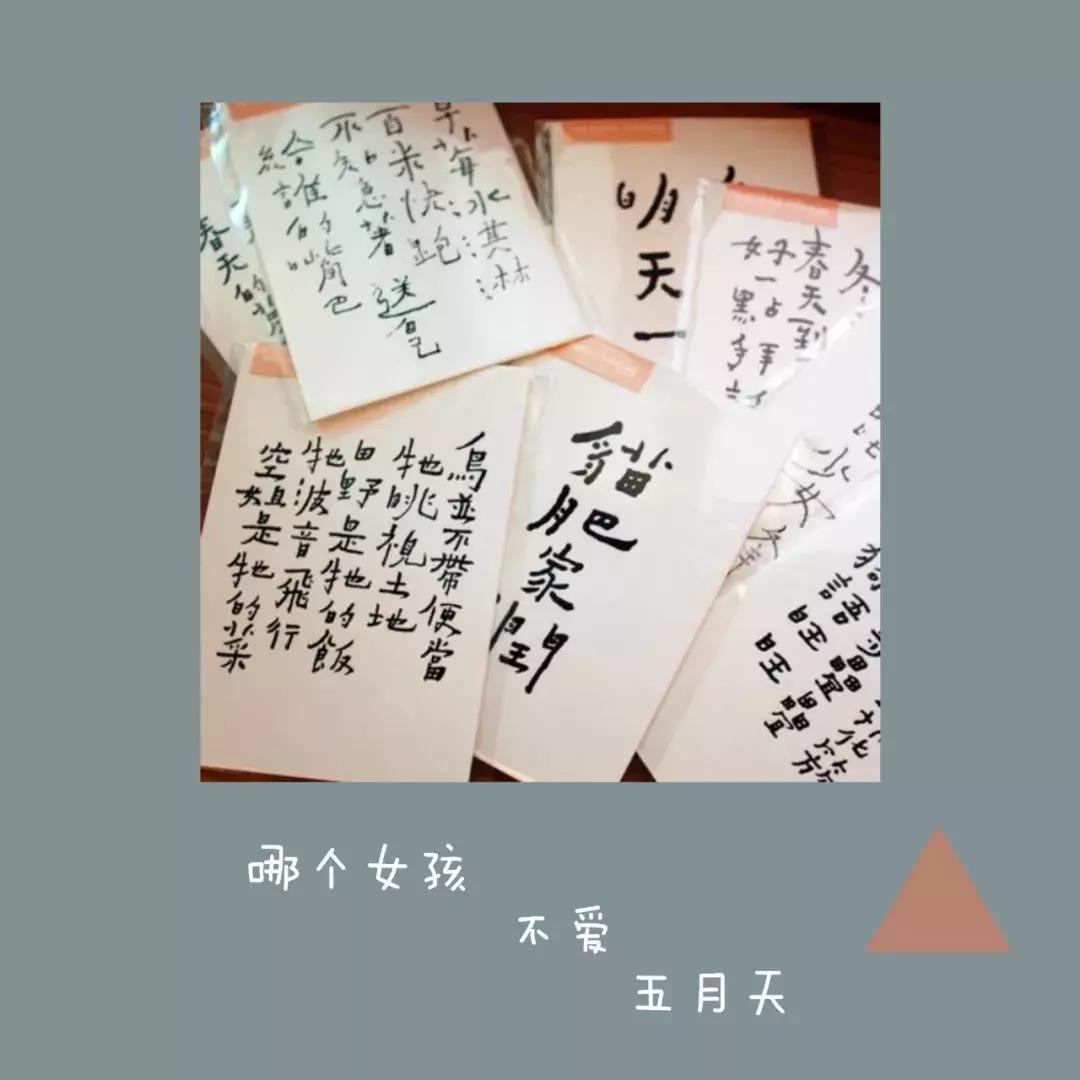 春天
草莓冰淇淋
百米快跑
不知急著送
給誰的嘴巴
明天一
冬
春天到
好一點
鳥並不帶便當
牠眺視土地
田野是牠的飯
牠波音飛行
空姐是牠的菜
貓肥家潤
少女
狗語
旺
旺
哪个女孩
不爱
五月天